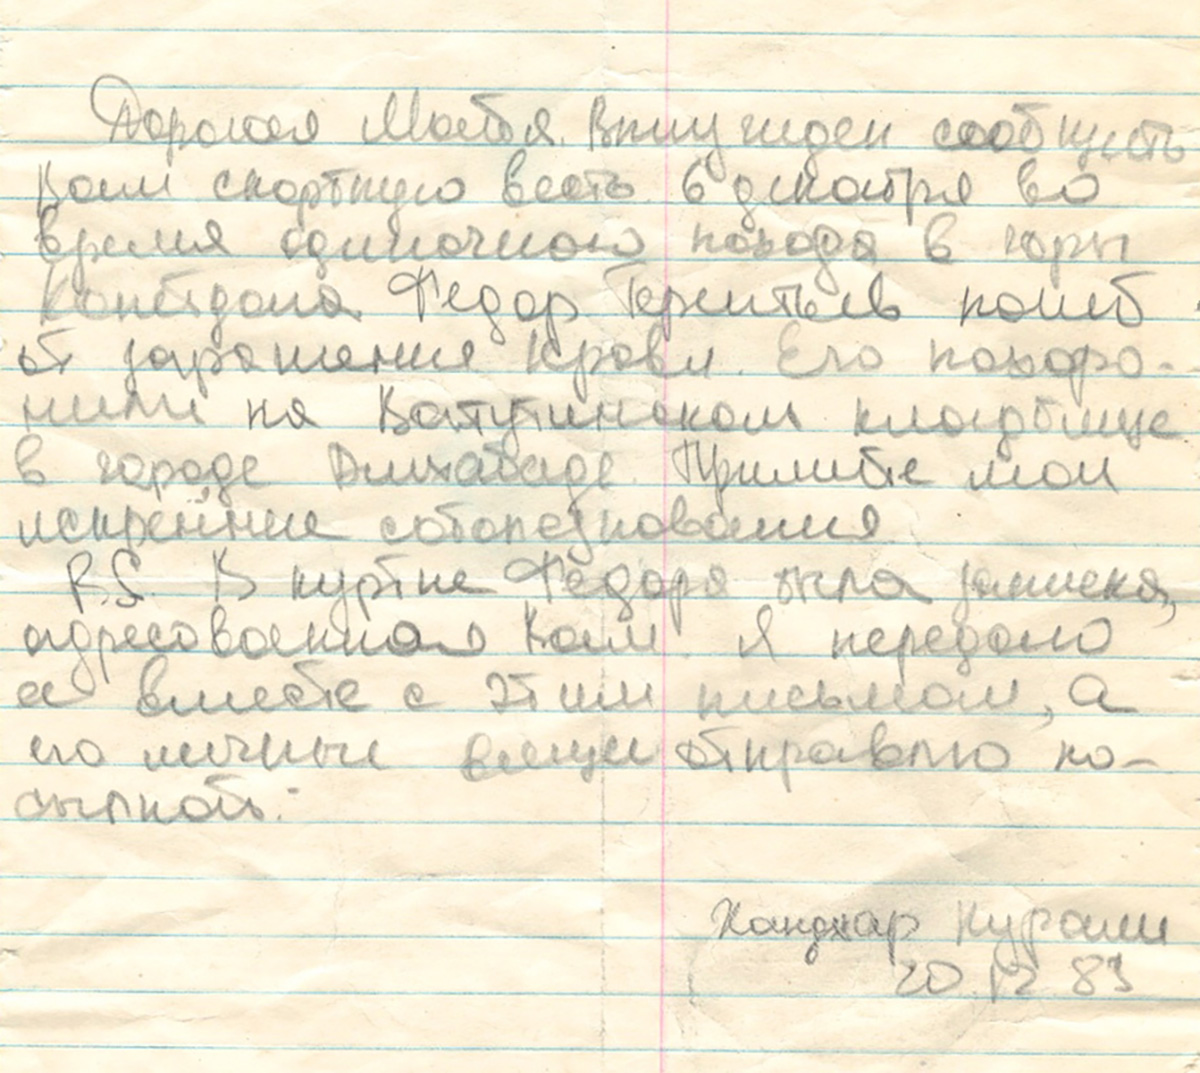 Дорогая Майя. Вынужден сообщить
Вам скорбную весть. 6 декабря во
время одиночного похода в горы
Копетдага Федор погиб
от заражения крови. Его похоро-
нили на Ватутинском кладбище
в городе Ашхабаде. Примите мои
искренние соболезнования
P.S. В куртке Фёдора была записка,
адресованная Вам. Я передаю
ее вместе с этим письмом, а
его личные вещи отправлю по-
сылкой.
Ханджар Кураш
20.12.83